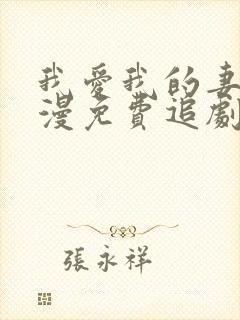 我愛我的妻
漫免費追劇
張永祥